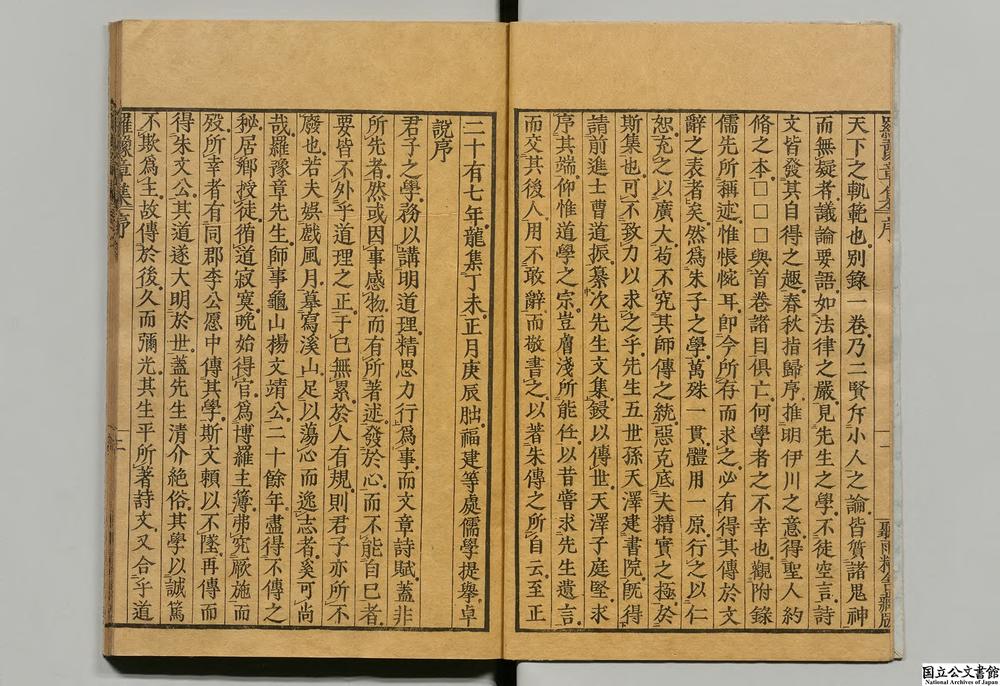 羅豫章集序
天下之軌範也別錄一卷乃二賢斥小人之論皆質諸鬼神
而無疑者議論要語如法律之嚴見先生之學不徒空言詩
文皆發其自得之趣春秋指歸序推明伊川之意得聖人約
脩之本□□□與首卷諸目俱亡何學者之不幸也觀附錄
儒先所稱述惟悵惋耳卽今所存而求之必有得其傳於文
辭之表者矣然爲朱子之學萬殊一貫體用一原行之以仁
恕充之以廣大苟不究其師傳之統惡克底夫精實之極於
斯集也可不致力以求之乎先生五世孫天澤建書院旣得
請前進士曹道振纂次先生文集鋟以傳世天澤子庭堅求
序其端仰惟道學之宗豈膚淺所能任以昔嘗求先生遺言
而交其後人用不敢辭而敬書之以著朱傳之所自云至正
二十有七年龍集丁未正月庚辰朏福建等處儒學提擧卓
說序
君子之學務以講明道理精思力行爲事而文章詩賦蓋非
所先者然或因事感物而有所著述發於心而不能自已者
要皆不外乎道理之正于已無累於人有規則君子亦所不
廢也若夫娯戲風月摹寫溪山足以蕩心而逸志者奚可尚
哉羅豫章先生師事龜山楊文靖公二十餘年盡得不傳之
秘居鄉授徒循道寂寞晩始得官爲博羅主簿弗究厥施而
歿所幸者有同郡李公愿中傳其學斯文賴以不墜再傳而
得朱文公其道遂大明於世蓋先生清介絶俗其學以誠篤
不欺爲主故傳於後久而彌光其生平所著詩文又合乎道
羅豫章集序
国立公文書館
National Archives of Japan